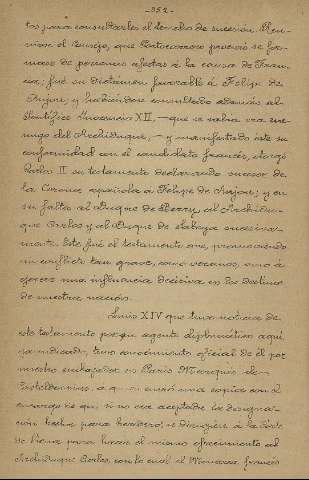 -352-
tos para consultarles el derecho de sucesión. Reu-
nióse el Consejo, que Portocarrero procuró se for-
mase de personas afectas á la causa de Fran-
cia, fué su dictámen favorable á Felipe de
Anjou, y habiéndose consultado además al
Pontífice Inocencio XII, —que se sabía era ene-
migo del Archiduque,— y manifestado éste su
conformidad con el candidato francés, otorgó
Carlos II su testamento declarando sucesor de
la Corona española á Felipe de Anjou; y en
su falta al Duque de Berry, al Archidu-
que Carlos y al Duque de Saboya sucesiva-
mente. Este fué el testamento que, promoviendo
un conflicto tan grave, como veremos, vino á
ejercer una influencia decisiva en los destinos
de nuestra nación.
Luis XIV que tuvo noticia de
este testamento por su agente diplomático aquí
ya indicado, tuvo conocimiento oficial de él por
nuestro embajador en París Marqués de
Casteldosrius, á quien se envió una copia con el
encargo de que, si no era aceptada la designa-
ción hecha para heredero, se dirigiera á la Corte
de Viena para hacer el mismo ofrecimiento al
Archiduque Carlos, con lo cual el Monarca francés